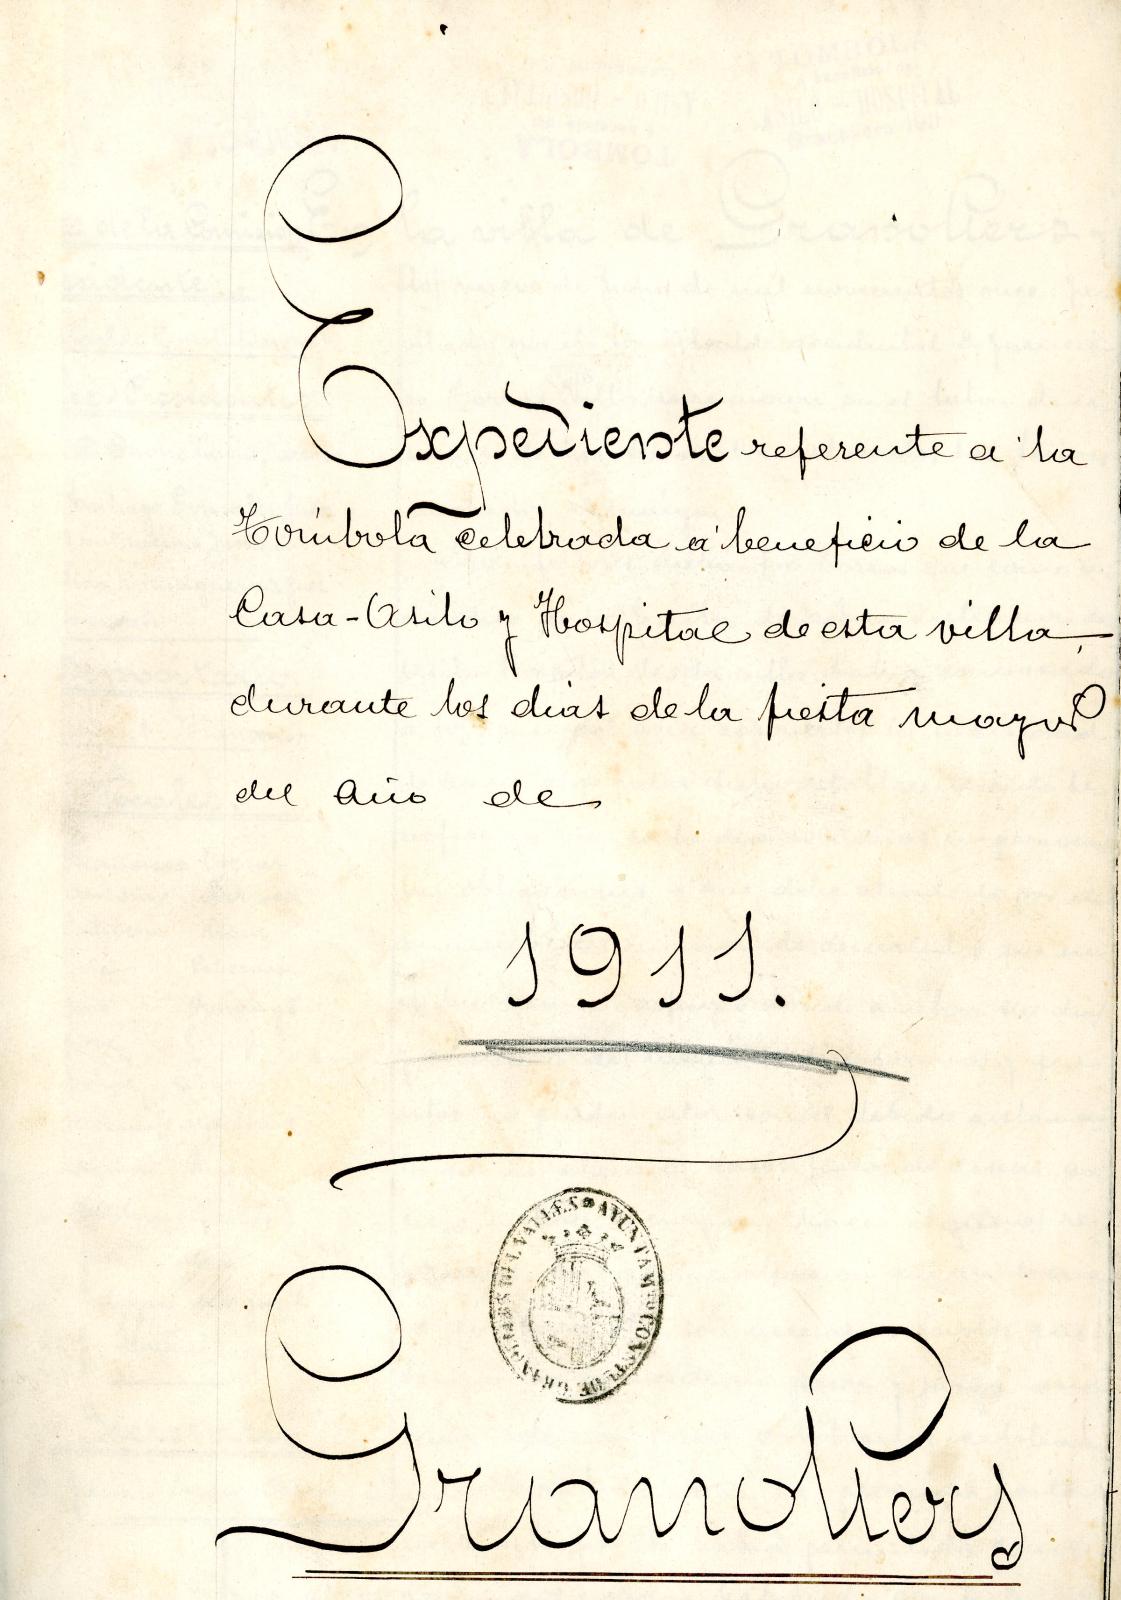 Expediente referente a la
Tómbola celebrada á beneficio de la
Casa-Asilo y Hospital de esta villa,
durante los dias de la fiesta mayor
del año de
1911.
AYUNTAMTO CONSTL DE GRANOLLERS DEL VALLES
Granollers